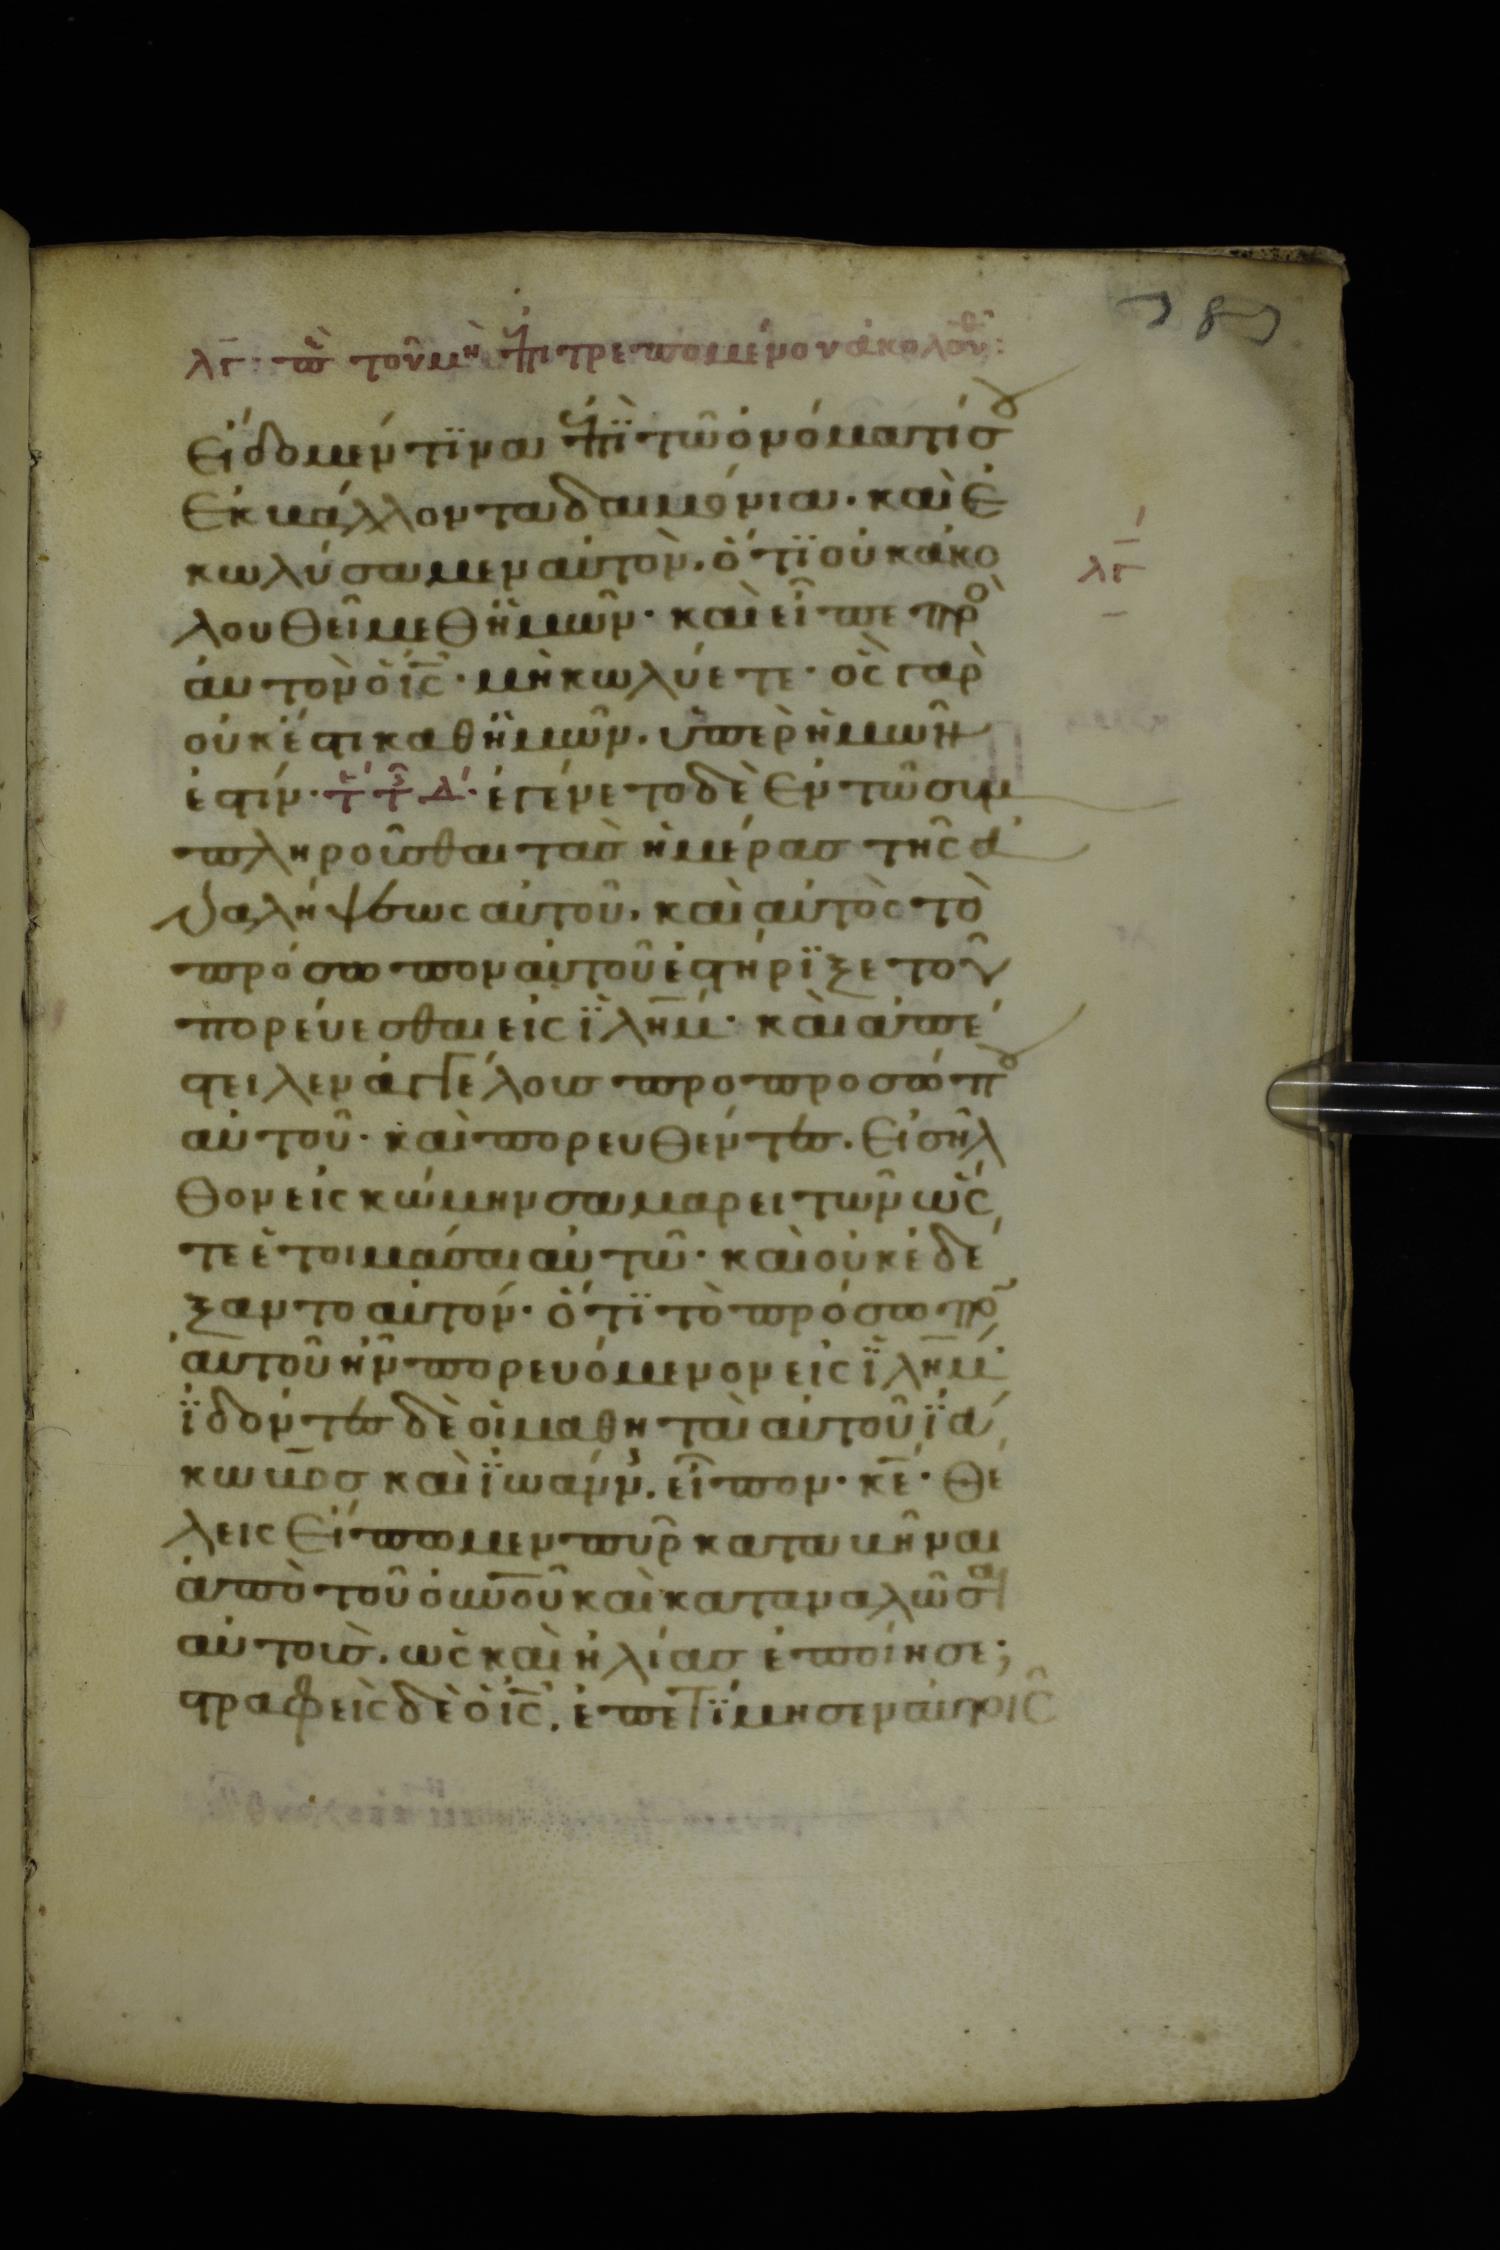 λγ· π τοῦ μὴ ἐπιτρεπομένου ἀκολουθ:
εἴδομέν τϊνα ἐπῒ τῶ ὀνόματί σου
ἐκβάλλοντα δαιμόνια. καὶ ἐ
κωλύσαμεν αυτὸν. ὅτϊ οὐκ ἀκο
λουθεῖ μεθ ἡμῶν· καὶ εἶπε πρὸ
ἀυτὸν ὁ ἰ̅ς̅· μὴ κωλύετε· ὃς γαρ
οὐκ ἔστι καθ ἡμῶν. ὑπερ ἡμῶν
ἐστίν· ἐγένετο δὲ ἐν τῶ συμ
πληροῦσθαι τασ ἡμέρασ τῆς ἀ
ναλήψεως αὐτοῦ. καὶ αὐτὸς τὸ
πρόσωπον αὐτοῦ ἐστήρϊξε τοῦ
πορεύεσθαι εἰς ϊ̅λ̅η̅μ̅· καὶ ἀπέ
στειλεν ἀγγέλουσ προ προσώπου
αὐτοῦ· καὶ πορευθέντεσ. εἰσῆλ
θον εἰς κώμην σαμαρειτῶν ὥς
τε ἑτοιμάσαι αὐτῶ· καὶ οὐκ ἐδέ
ξαντο αὐτόν· ὅτϊ τὸ πρόσωπο
αὐτοῦ ἦν πορευόμενον εἰς ϊ̅λ̅η̅μ̅·
ϊδόντεσ δὲ οἱ μαθηταὶ αὐτοῦ ϊά
κωβοσ καὶ ϊωάνν. εἶπον· κ̅ε̅· θέ
λεις εἴπωμεν πῦρ καταβῆναι
ἀπὸ τοῦ ο̅υ̅ν̅ο̅ῦ̅ καὶ καταναλῶσαι
αὐτουσ. ὡς καὶ ἠλίασ ἐποίησε;
στραφεὶς δὲ ὁ ἰ̅ς̅. ἐπετϊμησεν αὐτοῖς
λγ